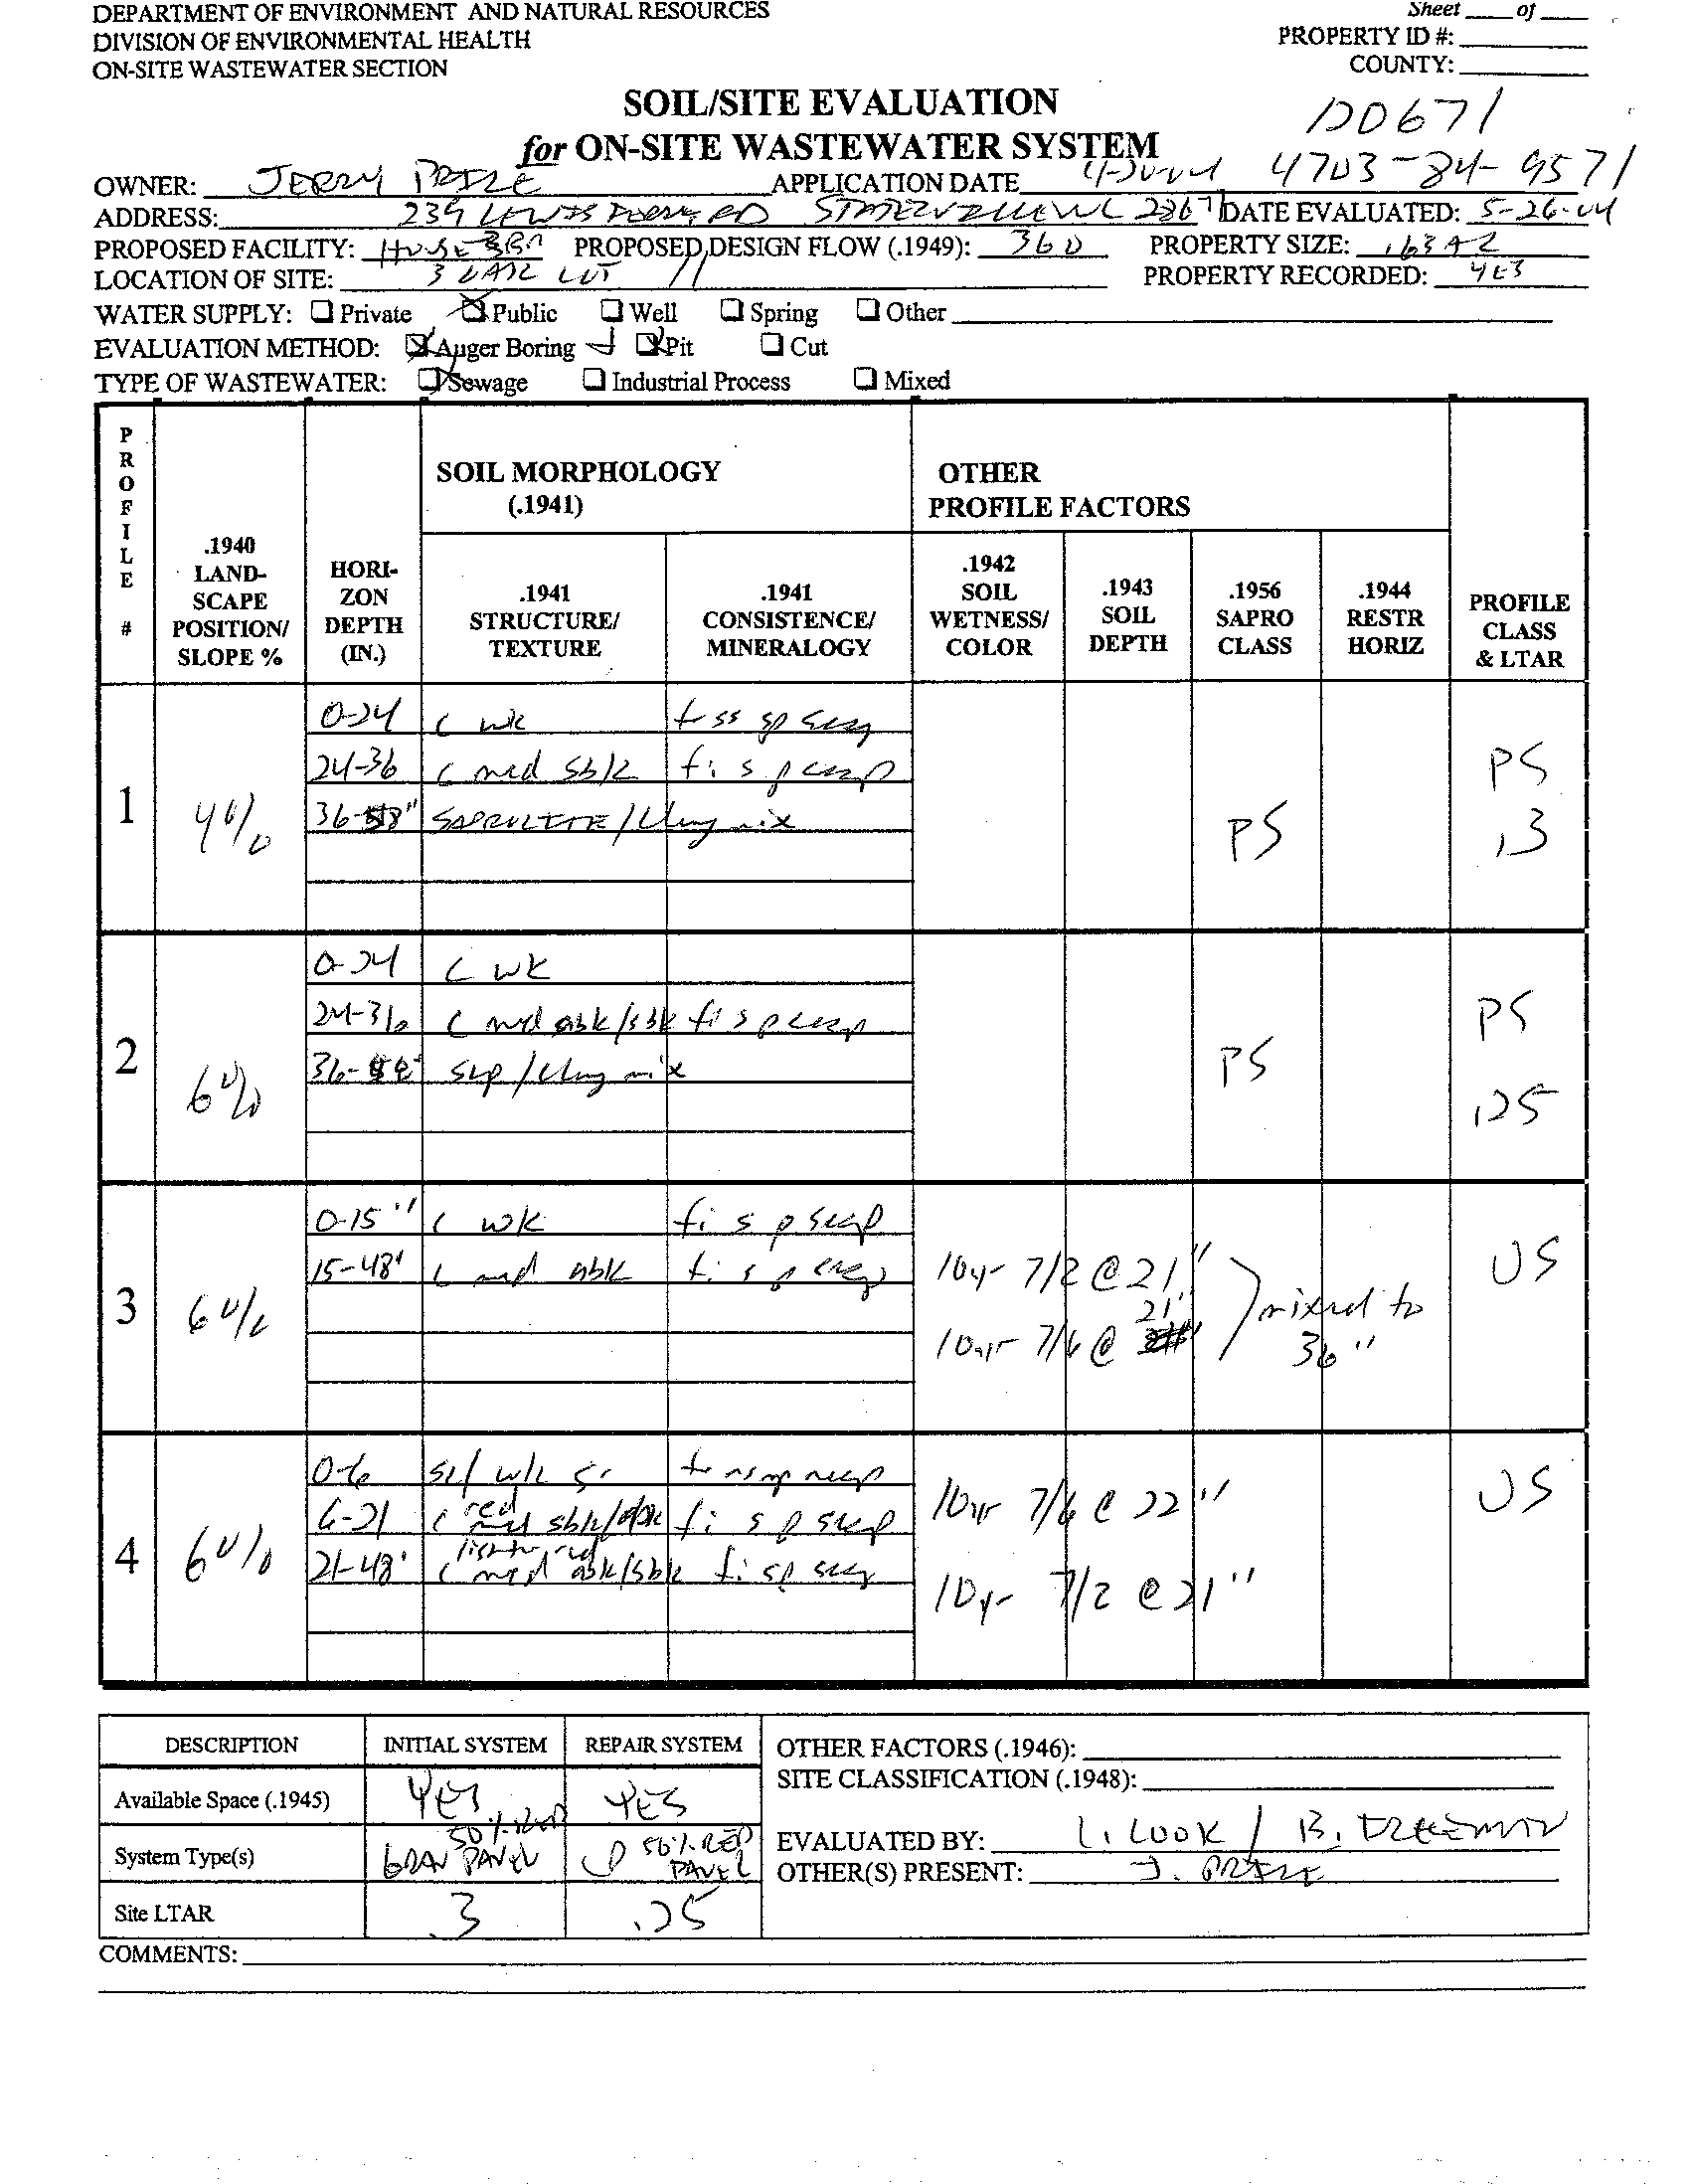 DEPARTMENT OF ENVIRONMENT AND NATURAL RESOURCES
DIVISION OF ENVIRONMENTAL HEALTH
ON-SITE WASTEWATER SECTION
Sheet ___ of ___
PROPERTY ID #:
COUNTY:
SOIL/SITE EVALUATION
for ON-SITE WASTEWATER SYSTEM
4703-84-9571
OWNER: JERRY APPLICATION DATE
ADDRESS: 239 LEWIS RD DATE EVALUATED: 5-26-04
PROPOSED FACILITY: HOUSE 3BR PROPOSED DESIGN FLOW (.1949): 360 PROPERTY SIZE: .63 A
LOCATION OF SITE: LOT 11 PROPERTY RECORDED: YES
WATER SUPPLY: Private Public Well Spring Other
EVALUATION METHOD: Auger Boring Pit Cut
TYPE OF WASTEWATER: Sewage Industrial Process Mixed
PROFILE #
.1940 LAND-SCAPE POSITION/ SLOPE %
HORI-ZON DEPTH (IN.)
SOIL MORPHOLOGY (.1941)
.1941 STRUCTURE/ TEXTURE
.1941 CONSISTENCE/ MINERALOGY
OTHER PROFILE FACTORS
.1942 SOIL WETNESS/ COLOR
.1943 SOIL DEPTH
.1956 SAPRO CLASS
.1944 RESTR HORIZ
PROFILE CLASS & LTAR
1 4%
0-24 c wk
24-36 c med sbk fi s p
36- SAPROLITE/Clay mix
PS
PS .3
2 6%
0-24 c wk
24-36 c med abk/sbk fi s p
36- sap/clay mix
PS
PS .25
3 6%
0-15" c wk fi s p sexp
15-48" c med abk fi s p
10yr 7/2 @ 21"
10yr 7/6 @ 21"
mixed to 36"
US
4 6%
0-6 wk
6-21 c red med sbk/abk fi s p sexp
21-48" c med abk/sbk fi s p
10yr 7/6 @ 22"
10yr 7/2 @ 21"
US
DESCRIPTION INITIAL SYSTEM REPAIR SYSTEM
Available Space (.1945) YES YES
System Type(s) GRAV PANEL 50% RED PANEL
Site LTAR .3 .25
OTHER FACTORS (.1946):
SITE CLASSIFICATION (.1948):
EVALUATED BY: L. COOK / B.
OTHER(S) PRESENT: J.
COMMENTS: